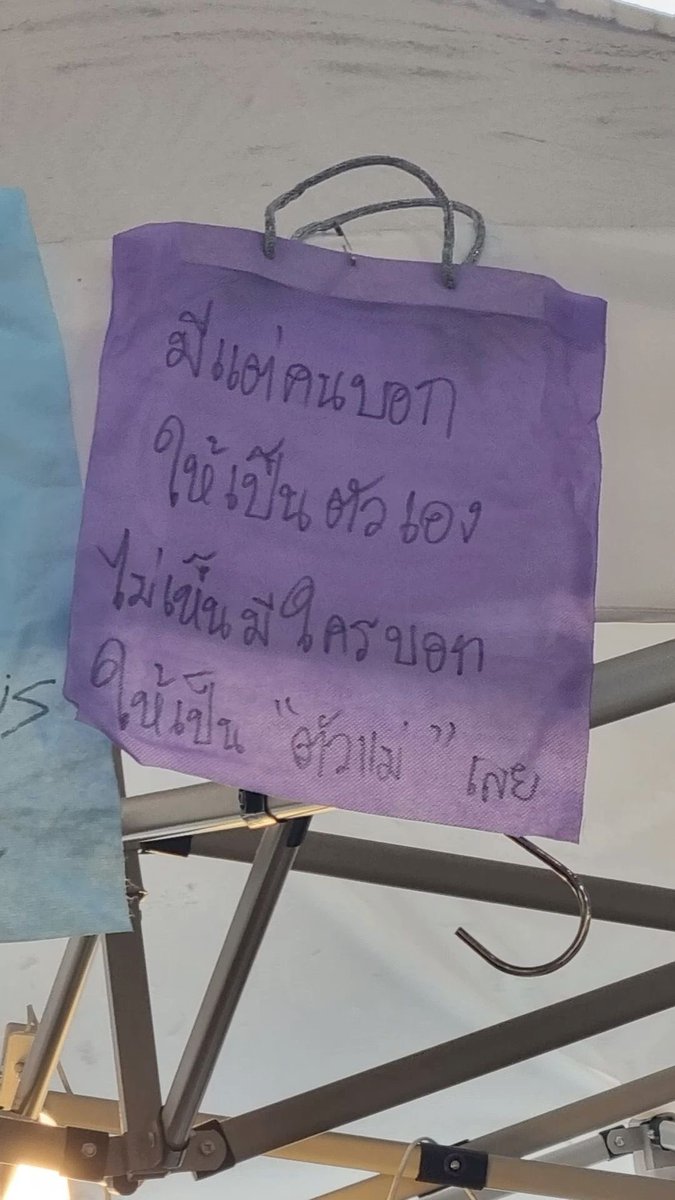 มีแต่คนบอก
ให้เป็นตัวเอง
ไม่เห็นมีใครบอก
ให้เป็น "ตัวแม่" เลย
is